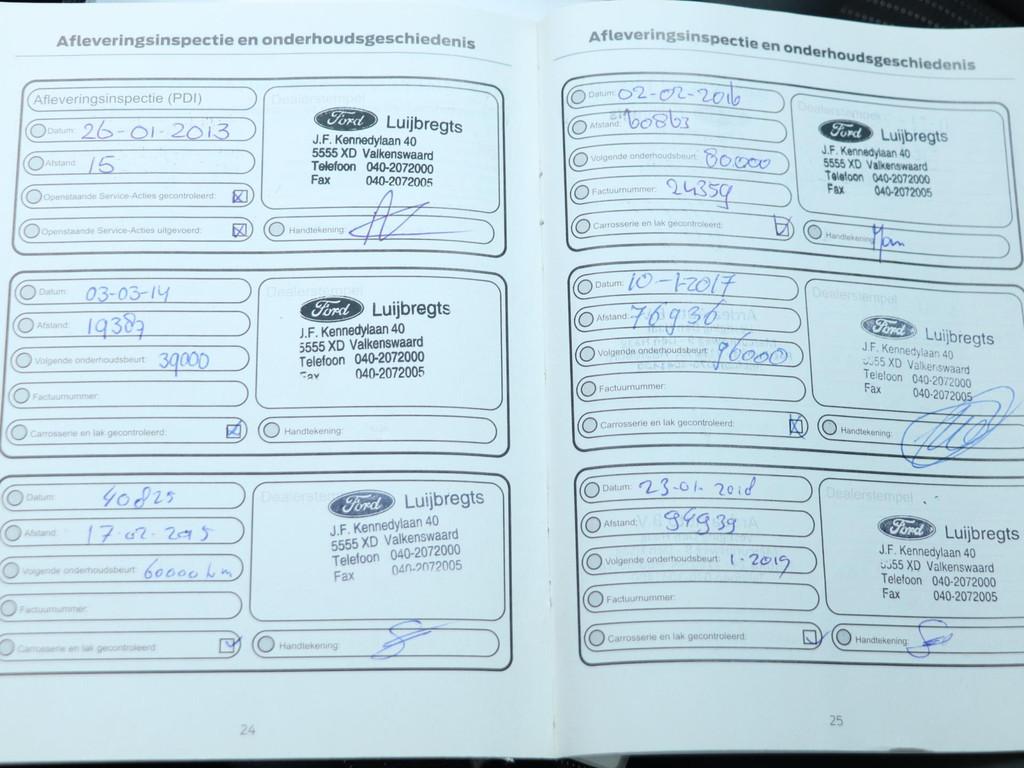 Afleveringsinspectie en onderhoudsgeschiedenis
Afleveringsinspectie (PDI)
Datum: 26-01-2013
Afstand: 15
Openstaande Service-Acties gecontroleerd:
Openstaande Service-Acties uitgevoerd:
Dealerstempel
Ford Luijbregts
J.F. Kennedylaan 40
5555 XD Valkenswaard
Telefoon 040-2072000
Fax 040-2072005
Handtekening:
Datum: 03-03-14
Afstand: 19387
Volgende onderhoudsbeurt: 39000
Factuurnummer:
Carrosserie en lak gecontroleerd:
Dealerstempel
Ford Luijbregts
J.F. Kennedylaan 40
5555 XD Valkenswaard
Telefoon 040-2072000
Fax 040-2072005
Handtekening:
Datum: 40825
Afstand: 17-02-2015
Volgende onderhoudsbeurt: 60000 km
Factuurnummer:
Carrosserie en lak gecontroleerd:
Dealerstempel
Ford Luijbregts
J.F. Kennedylaan 40
5555 XD Valkenswaard
Telefoon 040-2072000
Fax 040-2072005
Handtekening:
24
Afleveringsinspectie en onderhoudsgeschiedenis
Datum: 02-02-2016
Afstand: 60863
Volgende onderhoudsbeurt: 80000
Factuurnummer: 24359
Carrosserie en lak gecontroleerd:
Dealerstempel
Ford Luijbregts
J.F. Kennedylaan 40
5555 XD Valkenswaard
Telefoon 040-2072000
Fax 040-2072005
Handtekening:
Datum: 10-1-2017
Afstand: 76936
Volgende onderhoudsbeurt: 96000
Factuurnummer:
Carrosserie en lak gecontroleerd:
Dealerstempel
Ford Luijbregts
J.F. Kennedylaan 40
5555 XD Valkenswaard
Telefoon 040-2072000
Fax 040-2072005
Handtekening:
Datum: 23-01-2018
Afstand: 94939
Volgende onderhoudsbeurt: 1-2019
Factuurnummer:
Carrosserie en lak gecontroleerd:
Dealerstempel
Ford Luijbregts
J.F. Kennedylaan 40
5555 XD Valkenswaard
Telefoon 040-2072000
Fax 040-2072005
Handtekening:
25